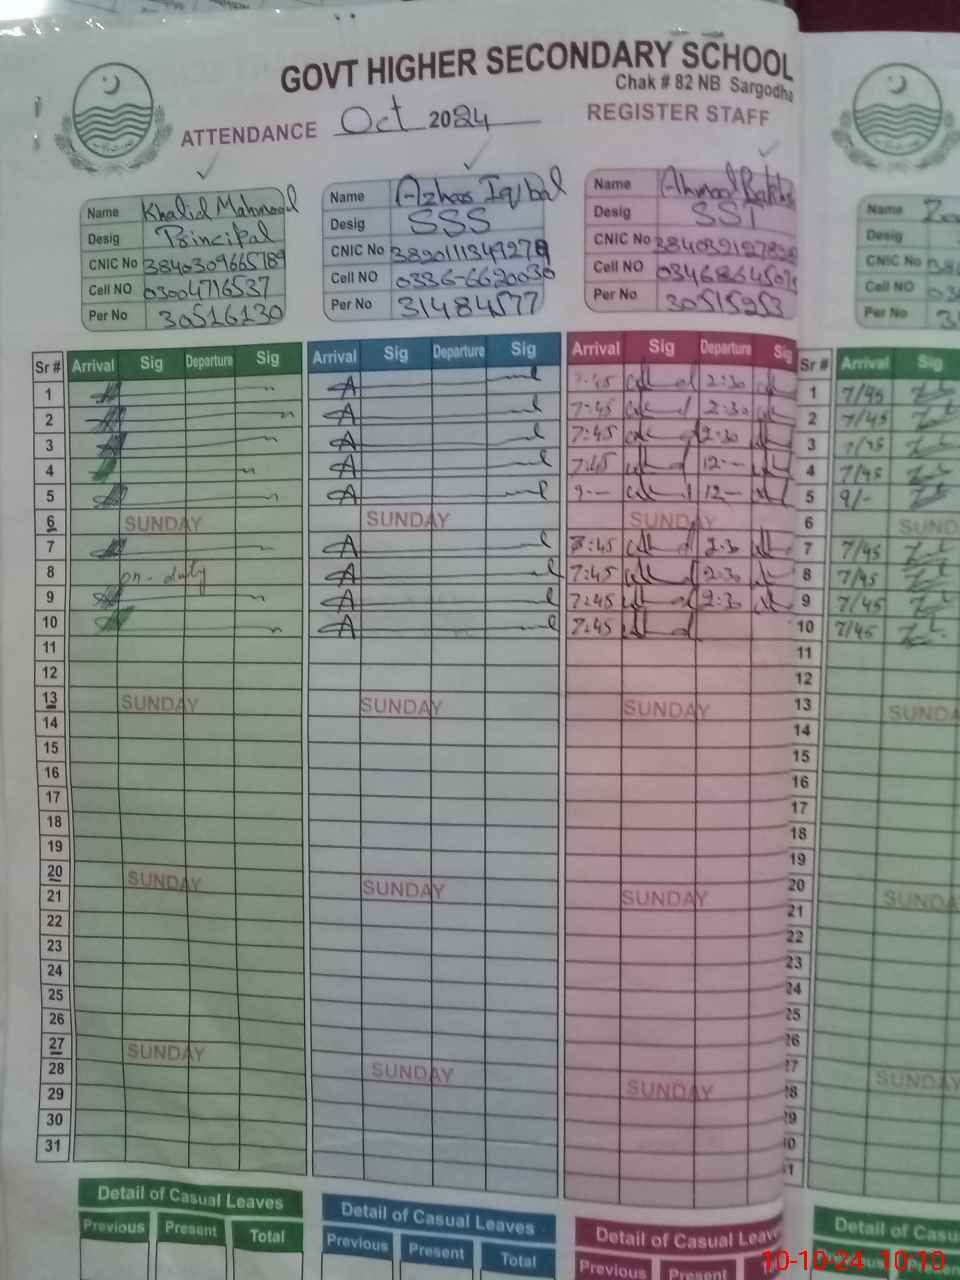 GOVT HIGHER SECONDARY SCHOOL
Chak # 82 NB Sargodha
ATTENDANCE Oct 2024 REGISTER STAFF
Name Khalid Mahmood
Desig Principal
CNIC No 3840309665789
Cell NO 03004716537
Per No 30516130
Name Azhar Iqbal
Desig SSS
CNIC No
Cell NO 0336-6620030
Per No 31484577
Name Ahmad
Desig SST
CNIC No
Cell NO
Per No 30515953
Name
Desig
CNIC No
Cell NO
Per No
Sr # Arrival Sig Departure Sig Arrival Sig Departure Sig Arrival Sig Departure Sig Sr # Arrival Sig
1 A 7:45 2:30 1 7/45
2 A 7:45 2:30 2 7/45
3 A 7:45 2:30 3 7/45
4 A 7:45 12-- 4 7/45
5 A 9:-- 12-- 5 9/-
6 SUNDAY SUNDAY SUNDAY 6 SUND
7 A 2:30 7 7/45
8 on-duty A 7:45 2:30 8 7/45
9 A 7:45 2:30 9 7/45
10 A 7:45 10 7/45
11 11
12 12
13 SUNDAY SUNDAY SUNDAY 13 SUNDA
14 14
15 15
16 16
17 17
18 18
19 19
20 SUNDAY SUNDAY SUNDAY 20 SUNDA
21 21
22 22
23 23
24 24
25 25
26 26
27 SUNDAY SUNDAY SUNDAY 27 SUNDAY
28 28
29 29
30
31
Detail of Casual Leaves Detail of Casual Leaves Detail of Casual Leave Detail of Casu
Previous Present Total Previous Present Total Previous Present
10-10-24 10:10